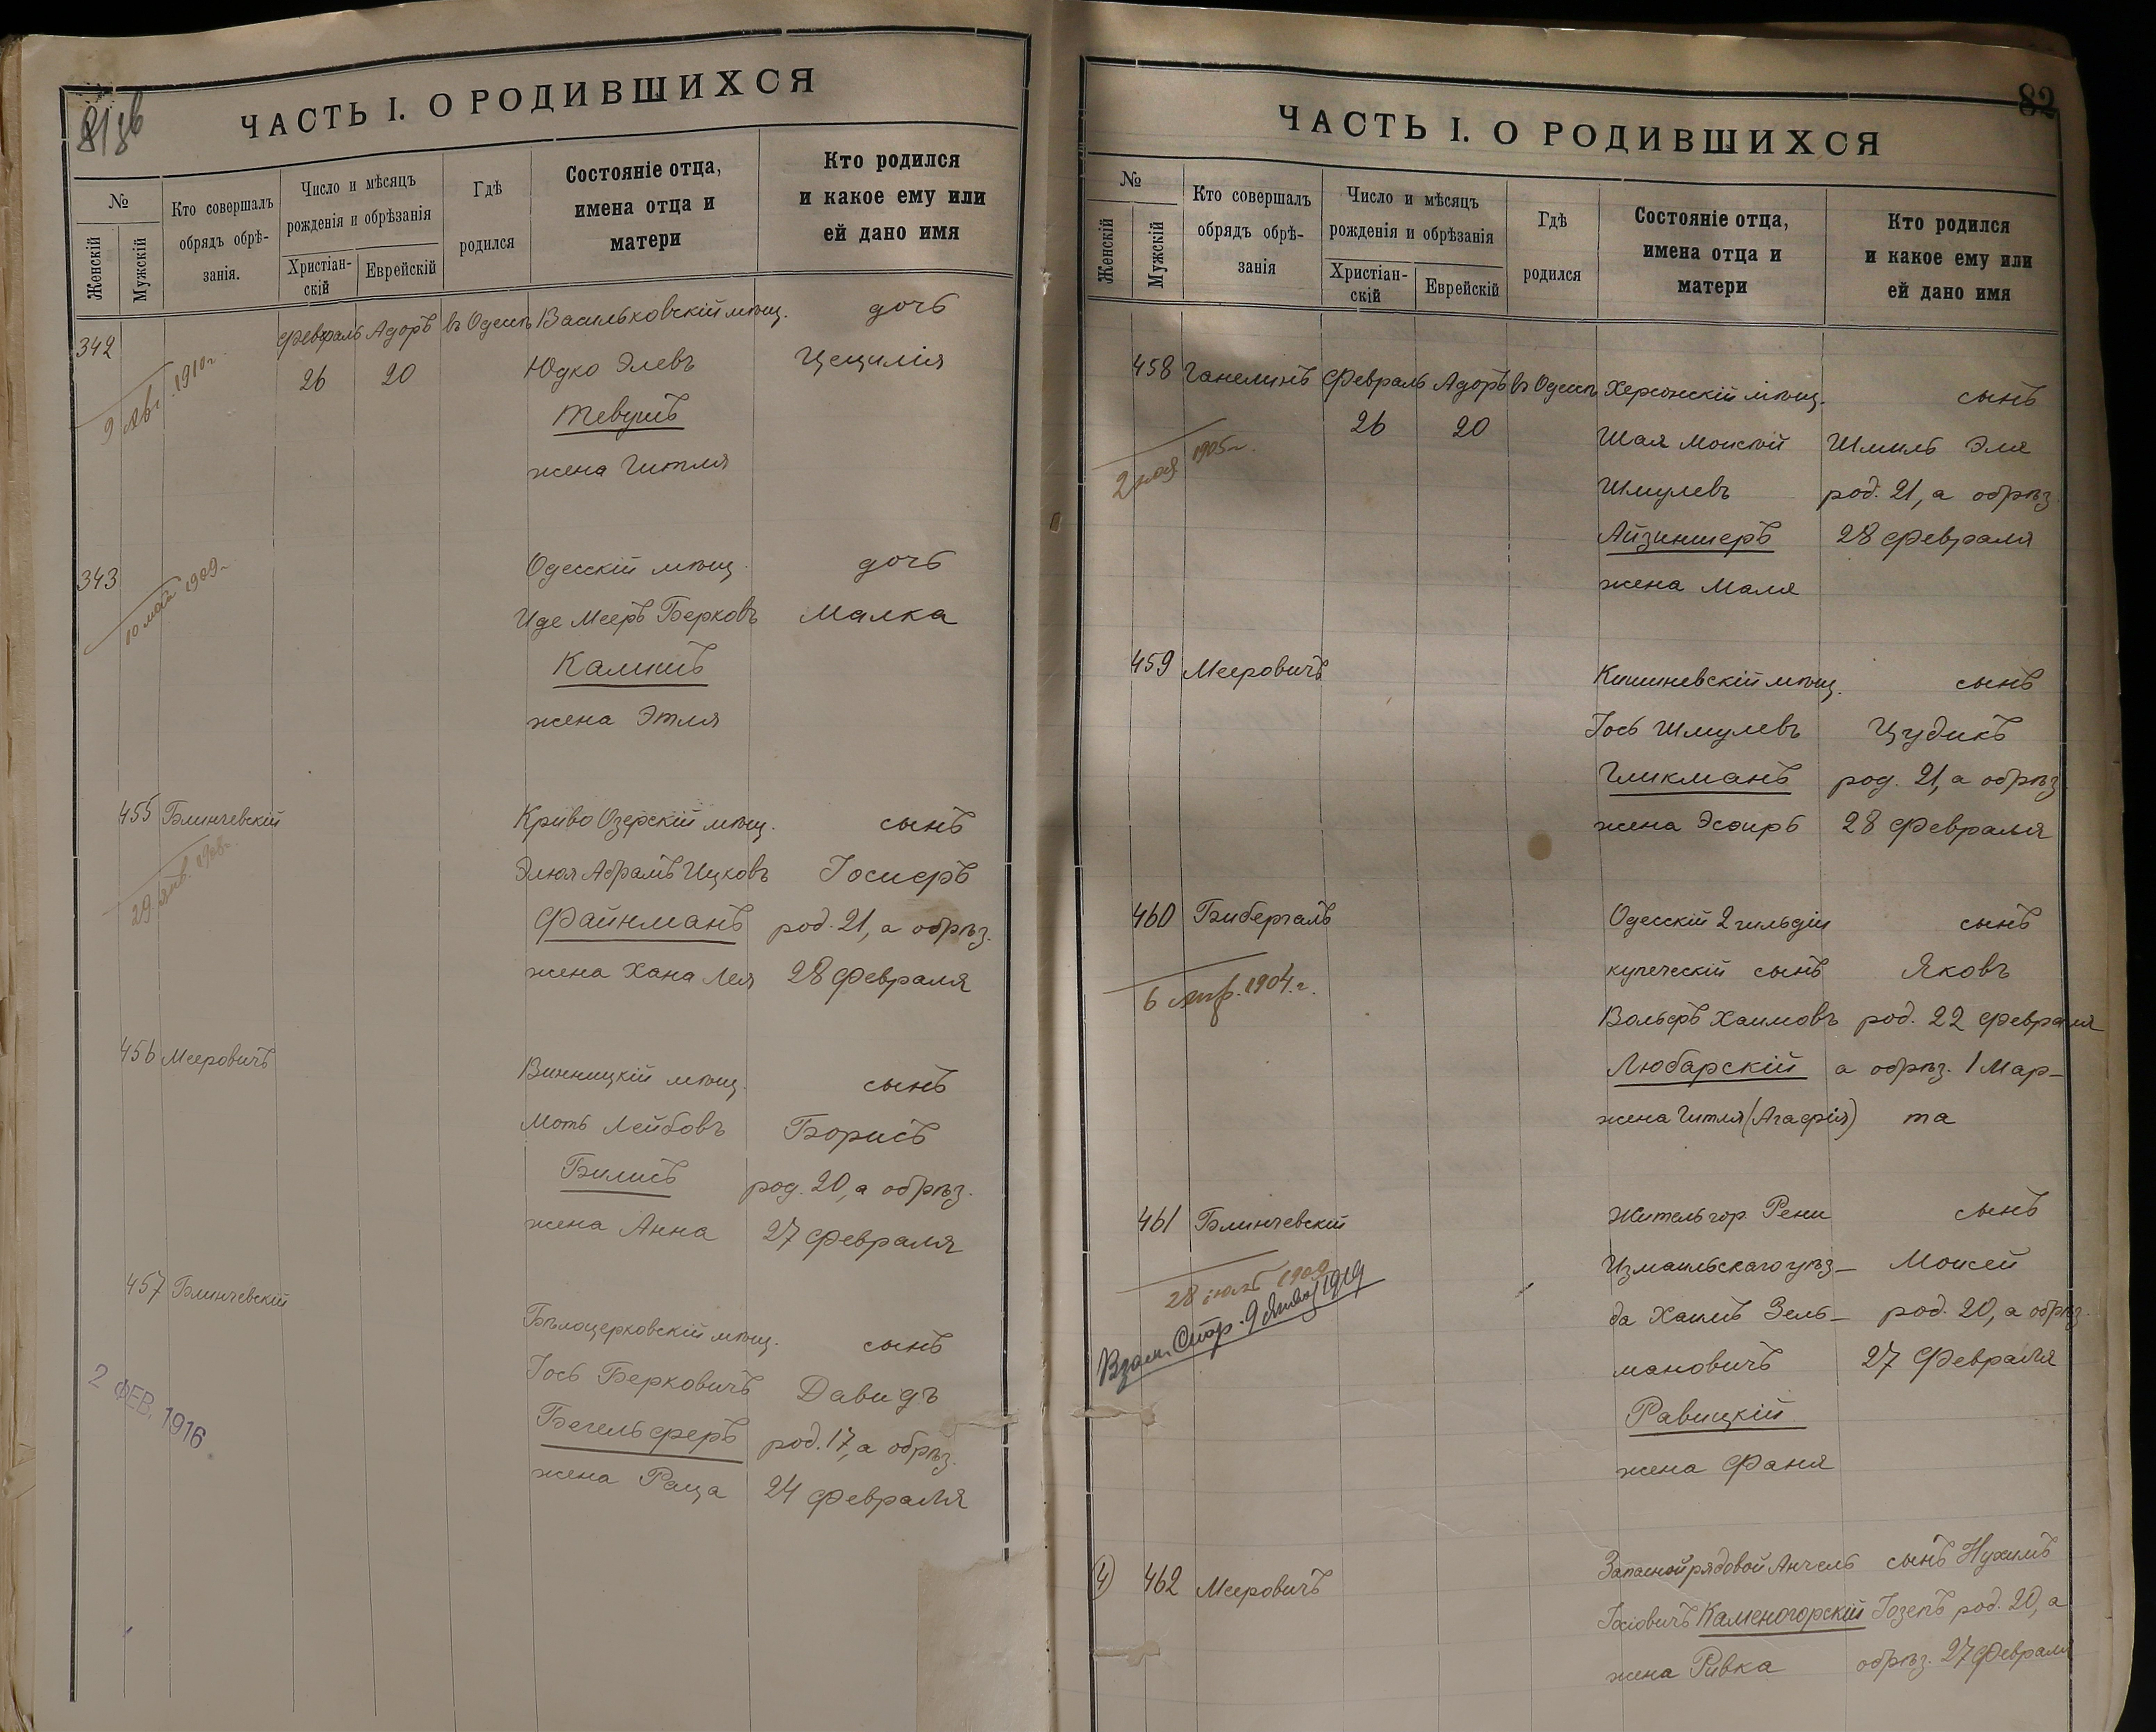 81 об
ЧАСТЬ I. О РОДИВШИХСЯ
№
Женскій
Мужскій
Кто совершалъ
обрядъ обрѣ-
занія.
Число и мѣсяцъ
рожденія и обрѣзанія
Христіан-
скій
Еврейскій
Гдѣ
родился
Состояніе отца,
имена отца и
матери
Кто родился
и какое ему или
ей дано имя
342 Февраль Адоръ въ Одессѣ Васильковскій мѣщ. дочь
26 20 Юдко Элевъ Цецилія
9 Авг. 1910 г.
Тевушъ
жена Гитля
343 Одесскій мѣщ. дочь
10 май 1909 г.
Иде Мееръ Берковъ Малка
Калнит
жена Этля
455 Блинчевскій Криво Озерскій мѣщ. сынъ
29 янв. 1908 г.
Элюл Абрамъ Ицковъ Іосиеръ
Файнманъ род. 21, а обрѣз.
жена Хана Лея 28 Февраля
456 Мееровичъ Винницкій мѣщ. сынъ
Моть Лейбовъ Борисъ
Билисъ род. 20, а обрѣз.
жена Анна 27 Февраля
457 Блинчевскій Бѣлоцерковскій мѣщ. сынъ
2 ФЕВ. 1916
Іось Берковичъ Давидъ
Бегельферъ род. 17, а обрѣз.
жена Раца 24 Февраля
82
ЧАСТЬ I. О РОДИВШИХСЯ
№
Женскій
Мужскій
Кто совершалъ
обрядъ обрѣ-
занія
Число и мѣсяцъ
рожденія и обрѣзанія
Христіан-
скій
Еврейскій
Гдѣ
родился
Состояніе отца,
имена отца и
матери
Кто родился
и какое ему или
ей дано имя
458 Ганелинъ Февраль Адоръ въ Одессѣ Херсонскій мѣщ. сынъ
26 20 Шая Моисей Шмиль Эля
2 мая 1905 г.
Шмулевъ род. 21, а обрѣз.
Айзиншеръ 28 Февраля
жена Маля
459 Мееровичъ Кишиневскій мѣщ. сынъ
Іось Шмулевъ Цудикъ
Гликманъ род. 21, а обрѣз.
жена Эсфирь 28 Февраля
460 Бибергалъ Одесскій 2 гильдіи сынъ
6 апр. 1904 г.
купеческій сынъ Яковъ
Вольфъ Хаимовъ род. 22 Февраля
Любарскій а обрѣз. 1 Мар-
жена Гитля (Агафія) та
461 Блинчевскій Житель гор. Рени сынъ
28 іюля 1909
Измаильскаго уѣз- Моисей
9 1919
да Хаимъ Зель- род. 20, а обрѣз.
мановичъ 27 Февраля
Равицкій
жена Фаня
4 462 Мееровичъ Запасной рядовой Анчель сынъ Нухимъ
Іосіовичъ Каменогорскій Іозепъ род. 20, а
жена Ривка обрѣз. 27 Февраля